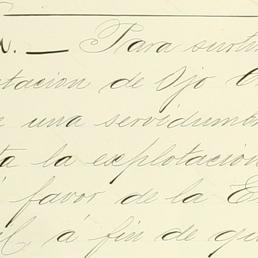 — Para surti
tacion de Ojo
una servidumb
ta la explotación
á favor de la E
á fin de que